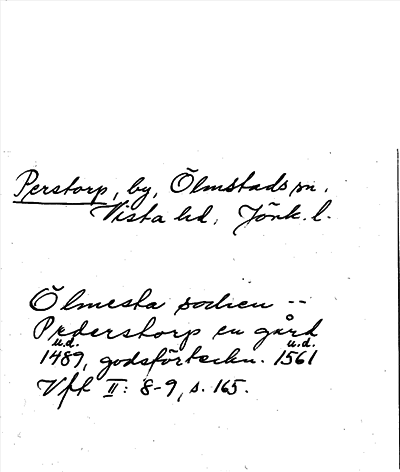 Perstorp, by, Ölmstads sn.
Vista hd, Jönk. l.
Ölmesta sochen --
Pederstorp en gård
u.d. u.d.
1489, godsförteckn. 1561
Vft II: 8-9, s. 165.